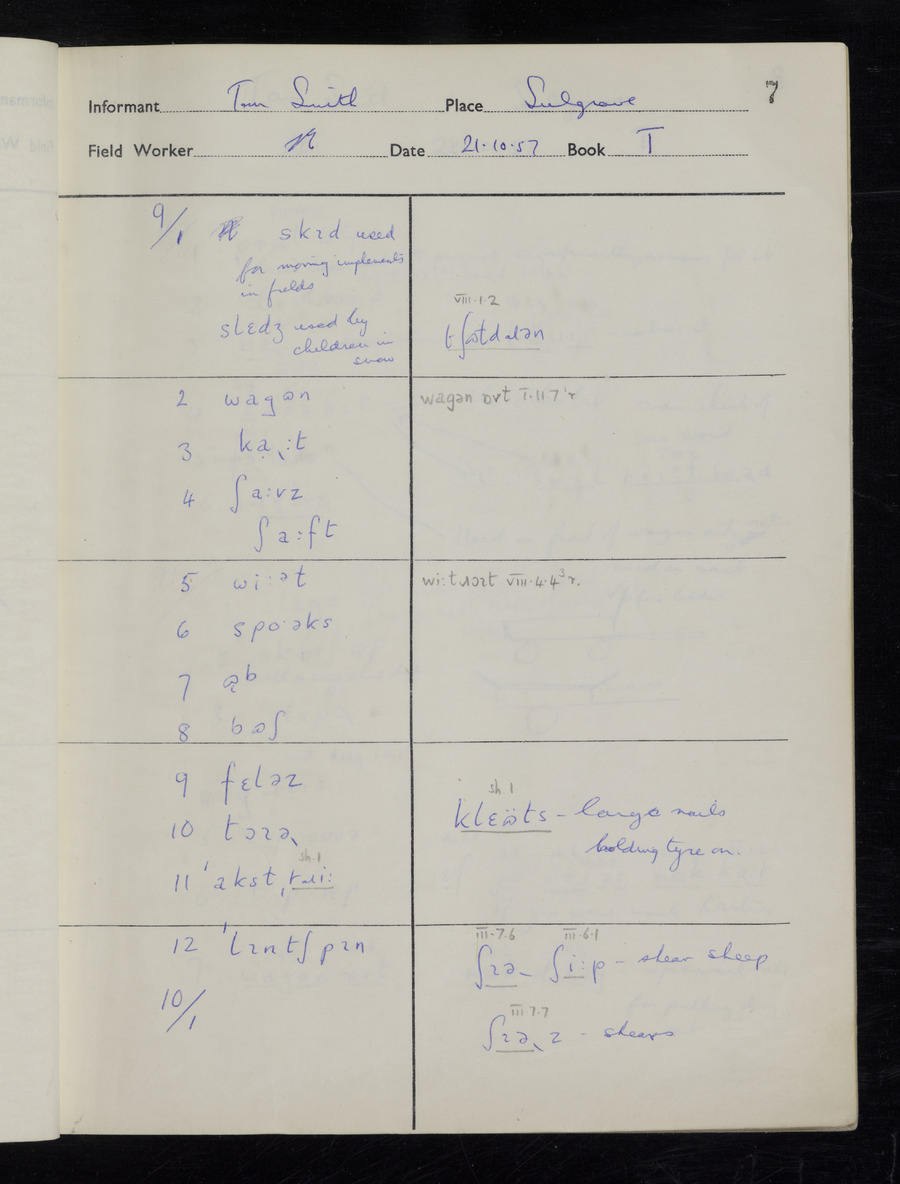 7
Informant Tom Smith Place Sulgrave
Field Worker Date 21·10·57 Book I
9/1 skɪd used
for moving implements
in fields
slɛdʒ used by
children in
snow
VIII·1·2
2 wagən
wagən I·11·7
3 ka˞:t
4 ʃa:vz
ʃa:ft
5 wi:ət
wi:t VIII·4·4
6 spo·əks
7 ab
8 bɷʃ
9 fɛləz
sh. 1
klɛɷ̈ts – large nails
holding tyre on.
10 tɔɪə˞
sh. 1
11 ˈakstˌɹɹi:
12 ˈlɪntʃpɪn
III·7·6 III·6·1
ʃɪə˞ ʃi:p – shear sheep
10/1
III·7·7
ʃɪə˞z – shears